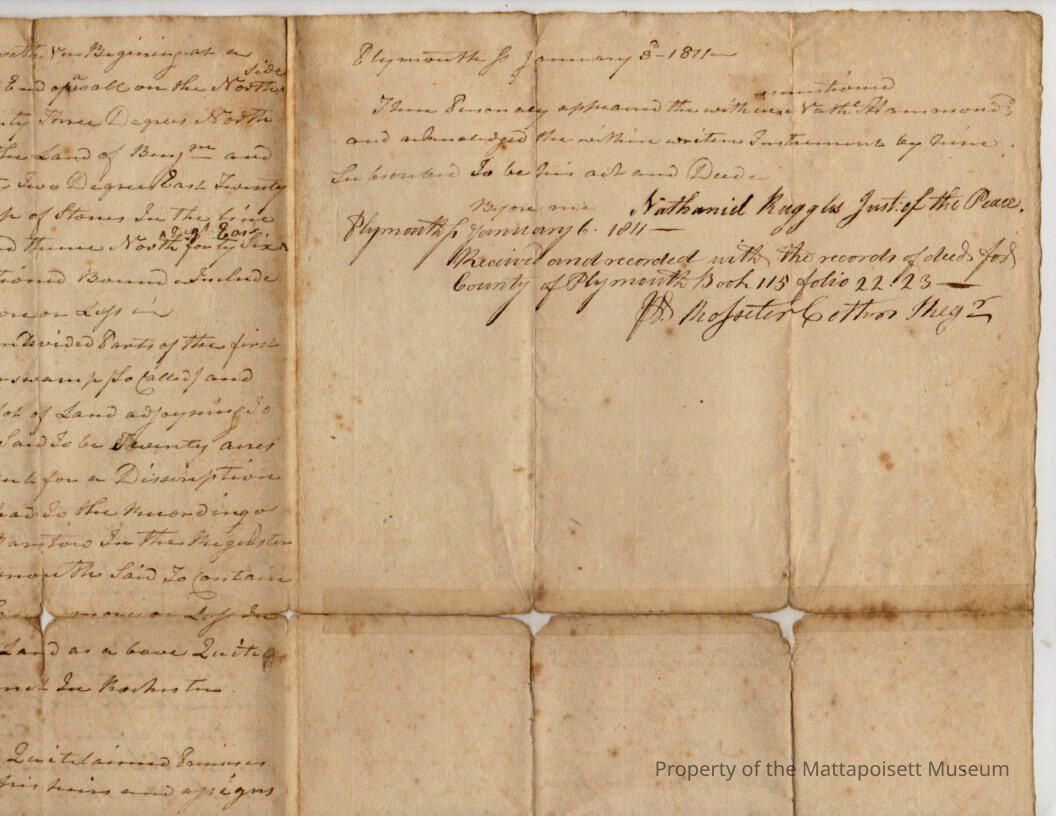 Begining at a
side
End of a wall on the North
Three Degrees North
The Land of Benjm and
Two Degree East Twenty
of Stones In the Line
Degs East
thence North forty Six
Bound Include
more or Less in
undivided Parts of the first
swamp (So Called) and
Lot of Land adjoyning To
Said To be Twenty acres
for a Discription
had To the Recording of
Barstow In the Register
Said To Contain
more or Less In
Land as a bove Quited
In Rochester
Quitclaimed Premises
his heirs and assigns
Plymouth Ss January 3d 1811
mentioned
Then Personaly appeared the within Nathl Hammond
and acknoledged the within written Instrument by him
Subscribed To be his act and Deed
Before me Nathaniel Ruggles Just. of the Peace.
Plymouth Ss January 6. 1811
Received and recorded with the records of deeds for
County of Plymouth Book 115 folio 22. 23
Rosseter Cotton Regr
Property of the Mattapoisett Museum